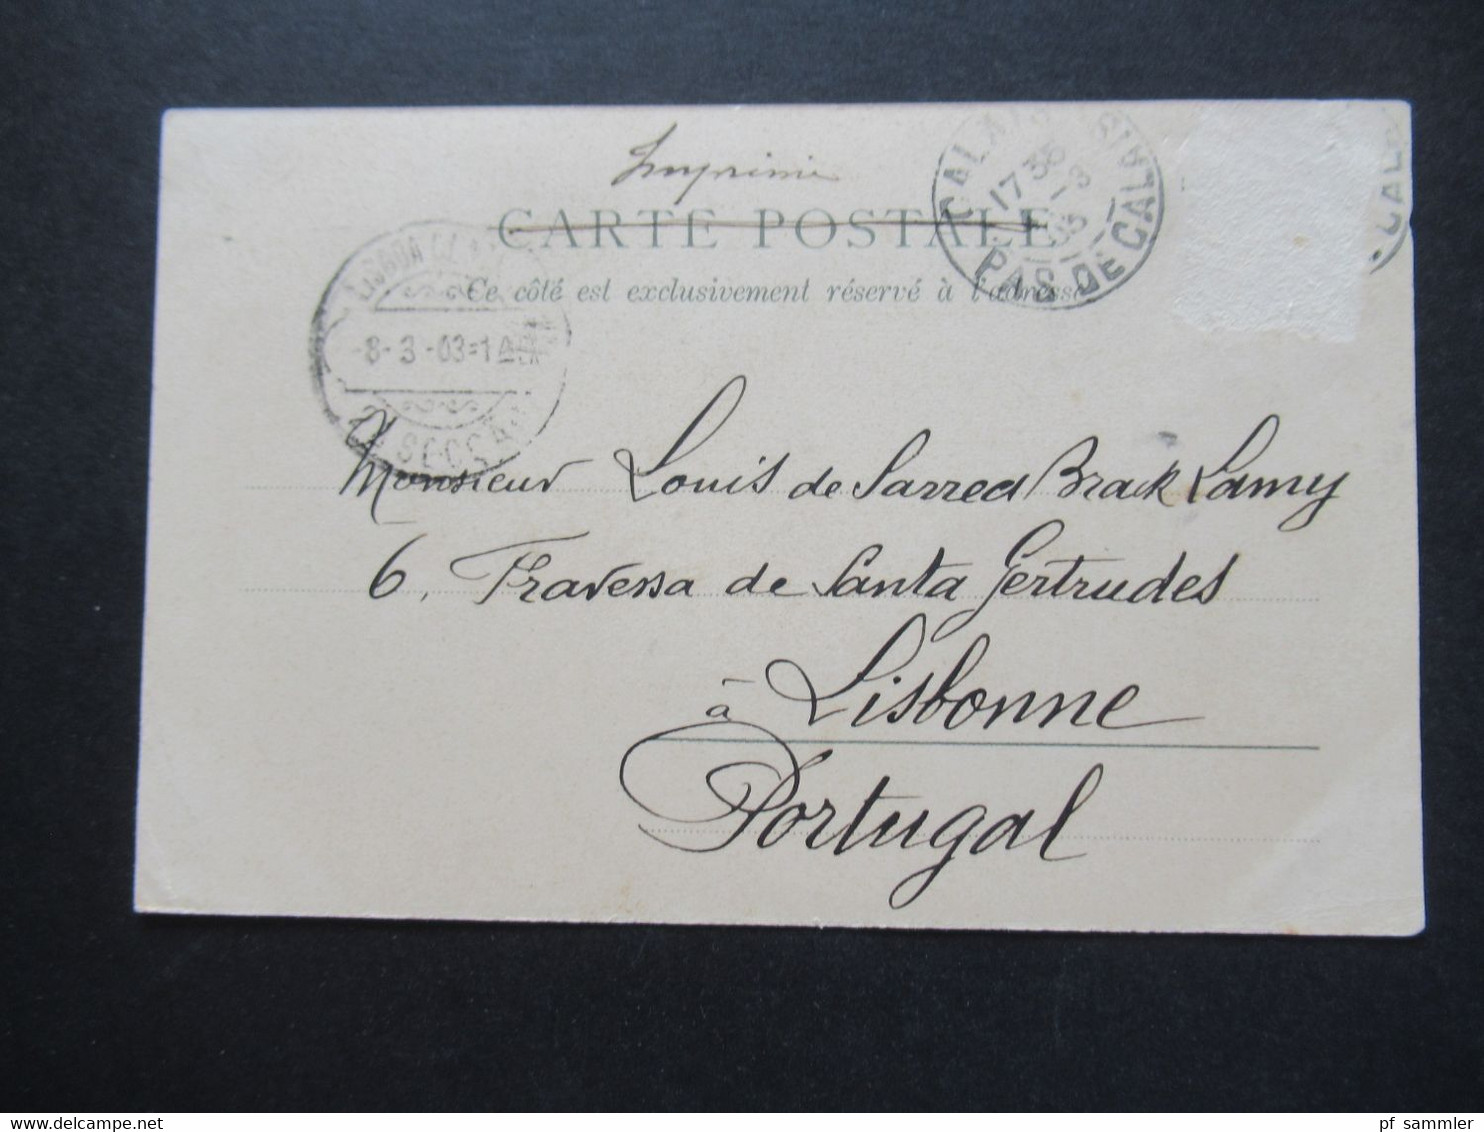 Imprimé
CARTE POSTALE
Ce côté est exclusivement réservé à l'adresse
CALAIS
17 35
03
PAS DE CALAIS
CALAIS
LISBOA CENTRAL
8- 3 -03=1
2ª SECÇÃO
Monsieur Louis de Sarrea Brack Lamy
6, Travessa de Santa Gertrudes
à Lisbonne
Portugal
pf_sammler